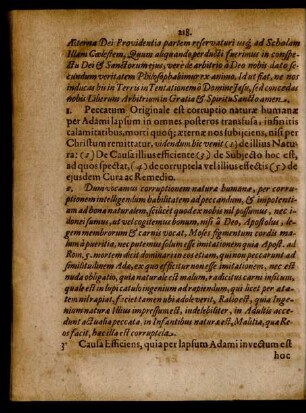 218.
Æterna Dei Providentia partem reservaturi usq; ad Scholam
Illam Cœlestem, Quum aliquando perducti fuerimus in conspe-
ctu Dei & Sanctorum ejus, vere de arbitrio à Deo nobis dato se-
cundum veritatem Philosophabimur ex animo. Id ut fiat, ne nos
inducas hîc in Terris in Tentationem ô Domine Jesu, sed concedas
nobis Liberum Arbitrium in Gratia & Spiritu Sancto amen.
1. Peccatum Originale est corruptio naturæ humanæ
per Adami lapsum in omnes posteros transfusa, infinitis
calamitatibus, morti quoq; æternæ nos subjiciens, nisi per
Christum remittatur, videndum hîc venit (1) de illius Natu-
ra: (2) De Causa illius efficiente (3) de Subjecto hoc est,
ad quos spectat, (4) de corruptela vel illius effectis (5) de
ejusdem Cura ac Remedio.
2. Dum vocamus corruptionem naturæ humanæ, per corru-
ptionem intelligendum habilitatem ad peccandum, & impotenti-
am ad bona naturalem, scilicet quod ex nobis nil possumus, nec i-
donei sumus, ad vel cogitemus bonum, nisi à Deo, Apostolus, le-
gem membrorum & carni vocat, Moses figmentum cordis ma-
lum à pueritia, nec putemus solum esse imitationem quia Apost. ad
Rom. 5. mortem dicit dominari in eos etiam, qui non peccarunt ad
similitudinem Adæ, ex quo efficitur non esse imitationem, nec est
nuda obligatio, quia naturale est malum, & radicitus carni insitum,
quale est in lupi catulo ingenium ad rapiendum, qui licet per æta-
tem nil rapiat, faciet tamen ubi adoleverit, Ratio est, quia Inge-
nium naturæ Illius impressum est, indelebiliter, in Adultis acce-
dunt actualia peccata, in Infantibus natura est, Malitiæ, quæ Re-
os facit, hæc illa est corruptela.
3 Causa Efficiens, quia per lapsum Adami invectum est
hoc